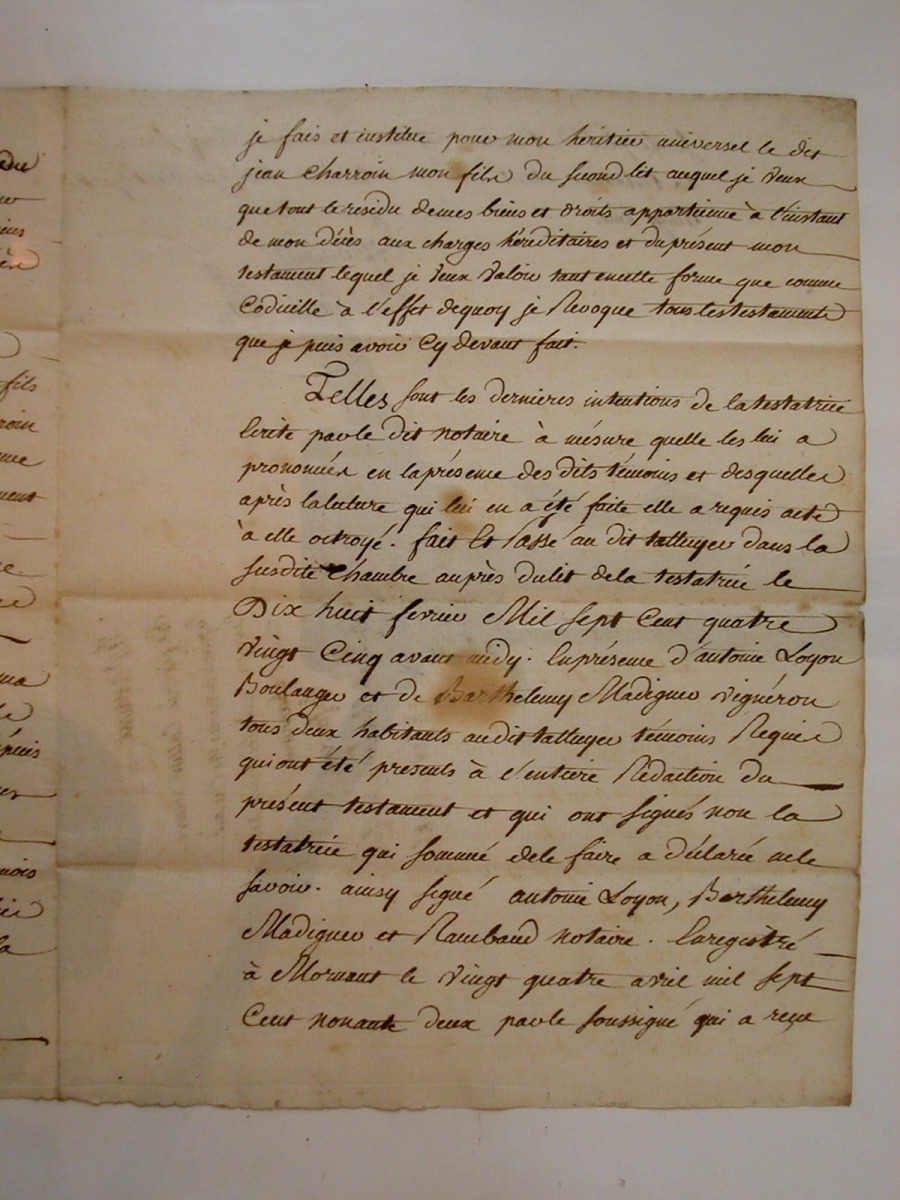 je fais et institue pour mon heritier universel le dit
jean Charroin mon fils du second lit auquel je veux
que tout le residu de mes biens et droits appartienne à l'instant
de mon décès aux charges héréditaires et du présent mon
testament lequel je veux valoir tant en cette forme que comme
Codicille à l'effet de quoy je Revoque tous les testaments
que je puis avoir Cy devant fait.
Telles sont les dernieres intentions de la testatrice
Ecrite par le dit notaire à mésure quelle les lui a
prononcées en la présence des dits témoins et desquelles
après la lecture qui lui en a été faite elle a requis acte
à elle octroyé. fait Et Passé au dit talluyer dans la
susdite Chambre auprès du lit de la testatrice le
Dix huit fevrier Mil sept Cent quatre
vingt Cinq avant midy. En présence d'antoine Loyon
Boulanger et de Barthelemy Madignier vignéron
tous deux habitants au dit talluyer témoins Requis
qui ont été presents à l'entiere Rédaction du
présent testament et qui ont signés non la
testatrice qui sommé de le faire a déclaré ne le
savoir. ainsy signé antoine Loyon, Barthelemy
Madignier et Rambaud notaire. Enregistré
à Mornant le vingt quatre avril mil sept
Cent nonante deux par le soussigné qui a reçu
fils